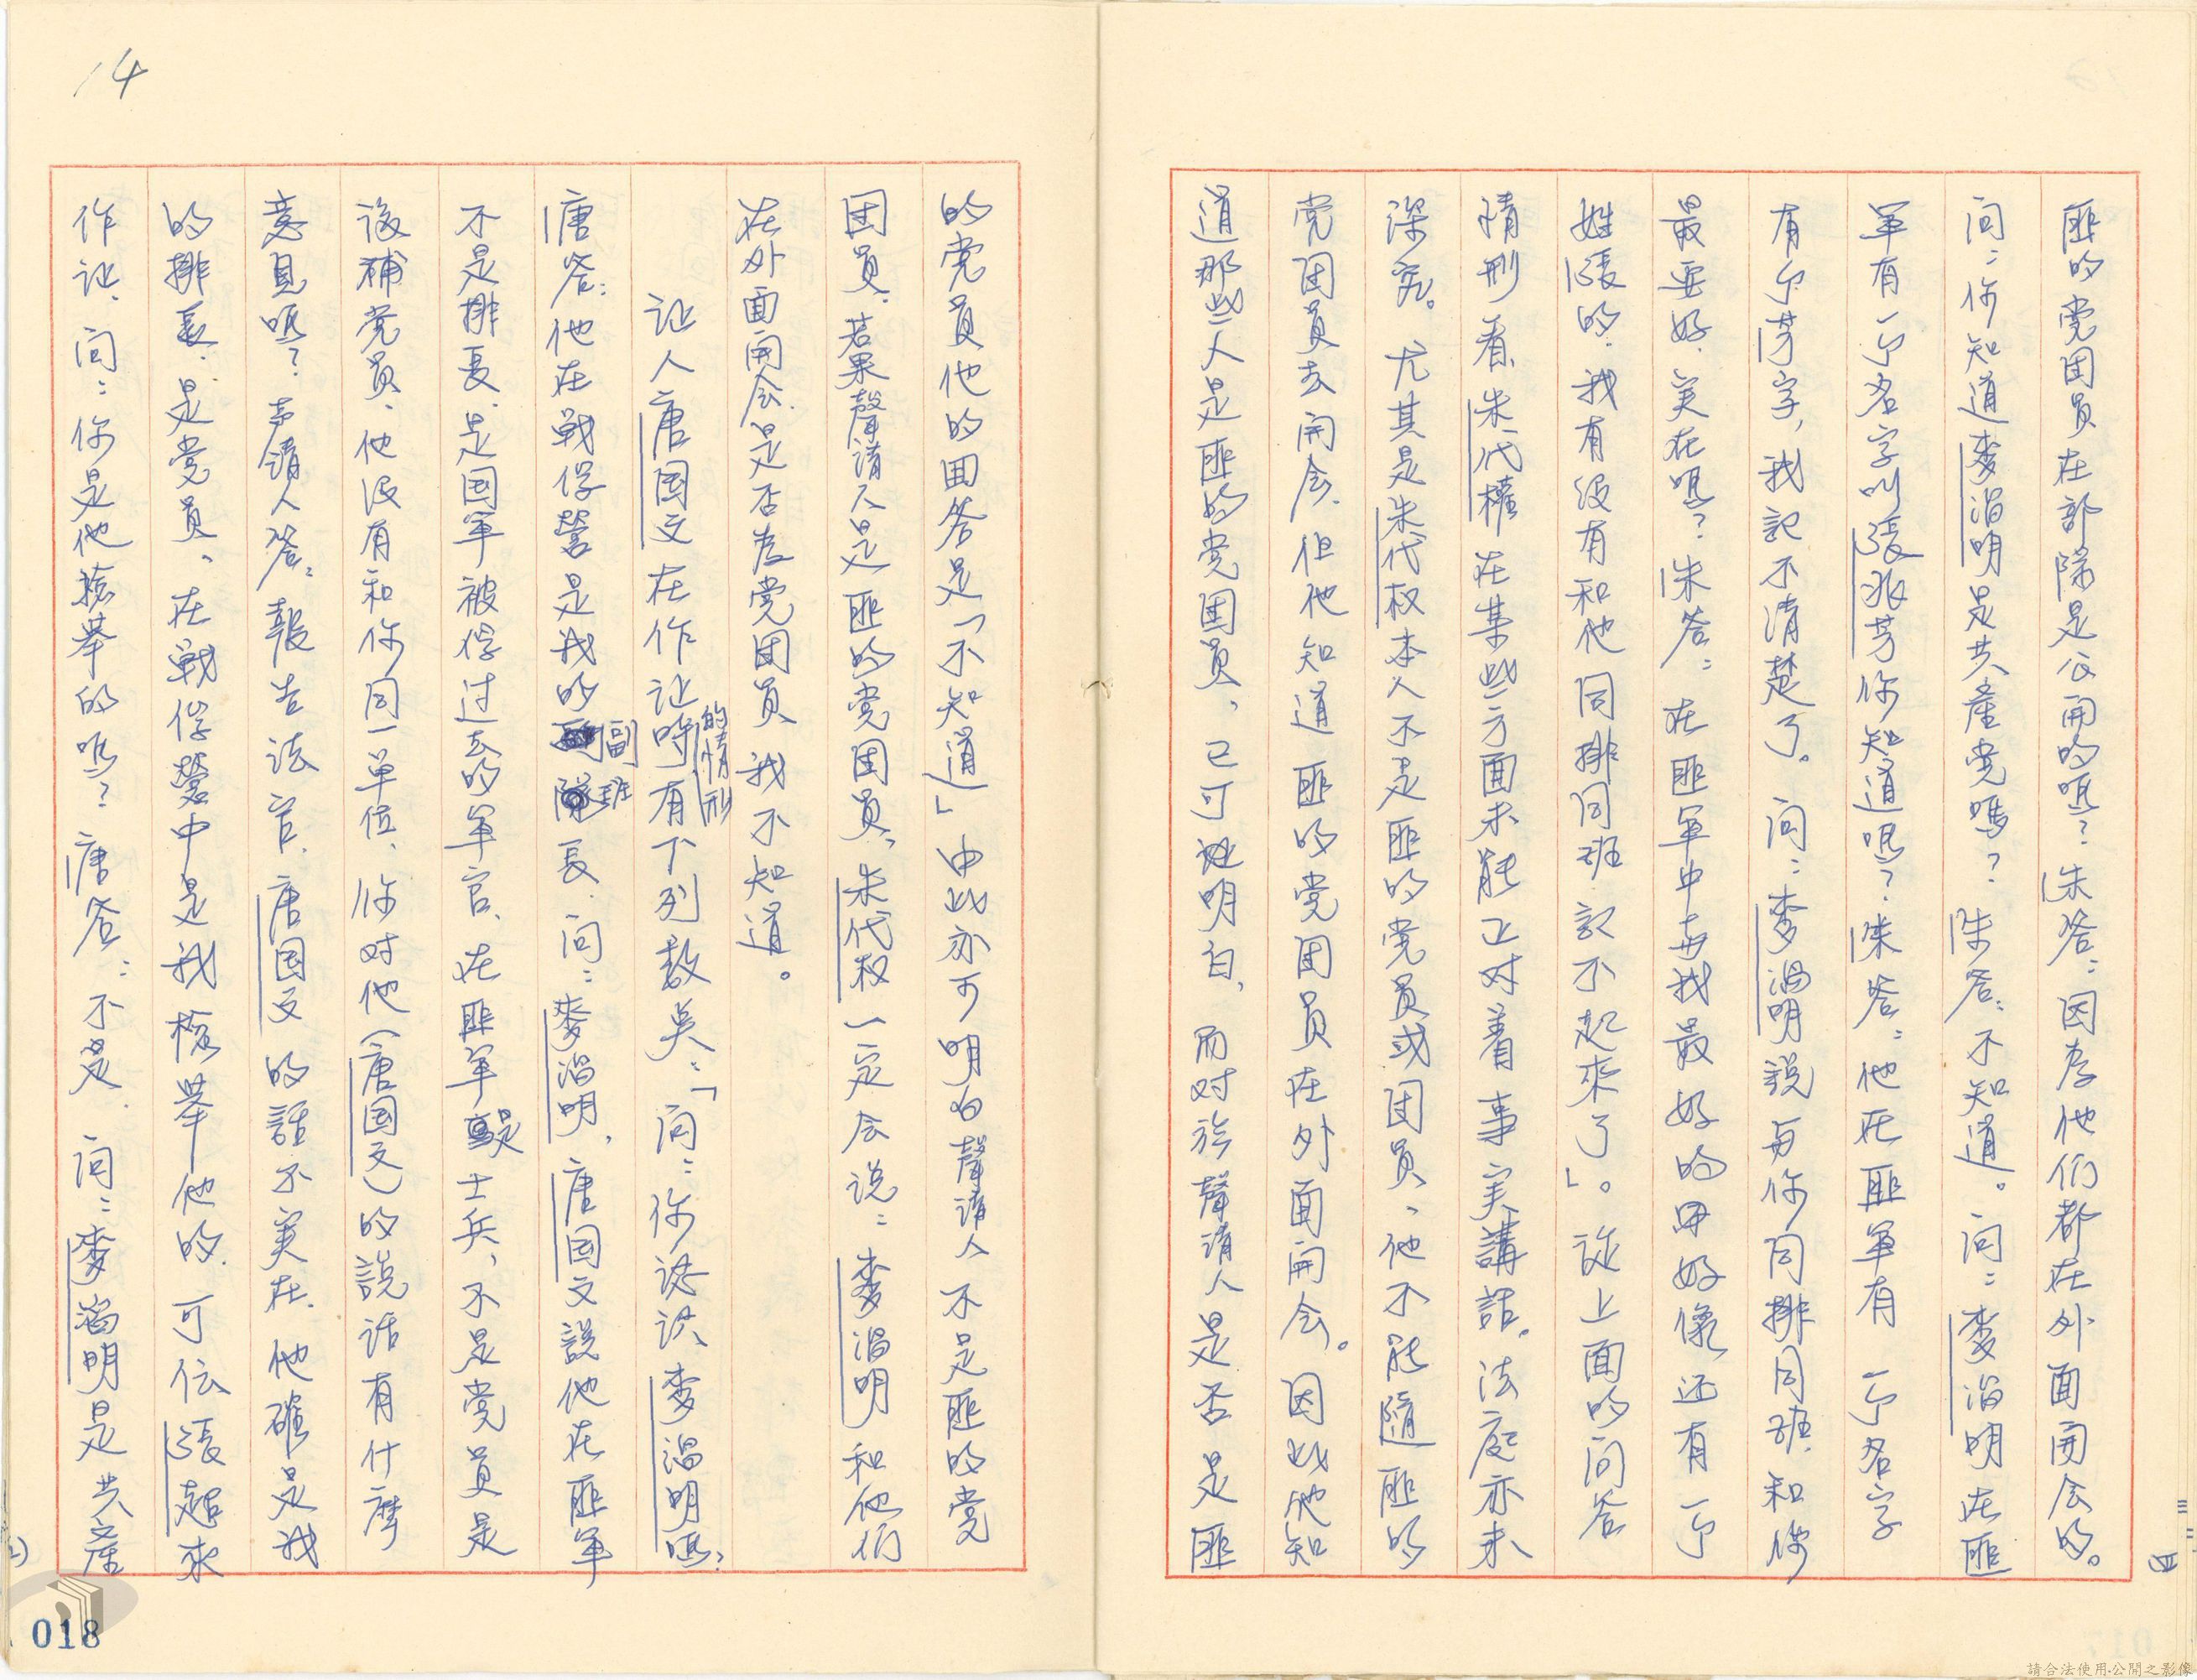 匪的党团员在部隊是公开的吗？朱答：因为他们都在外面開会的。
问：你知道麥滔明是共產党嗎？朱答：不知道。问：麥滔明在匪
軍有一个名字叫張兆芳你知道吗？朱答：他在匪軍有一个名字
有个芳字，我記不清楚了。问：麥滔明説与你同排同班，和你
最要好，实在吗？朱答：在匪軍中与我最好的好像还有一个
姓張的，我有没有和他同排同班記不起來了」。從上面的问答
情形看朱代權在某些方面未能正对着事实講話。法庭亦未
深究。尤其是朱代权本人不是匪的党員或团員，他不能隨匪的
党团員去開会，但他知道匪的党团員在外面開会。因此他知
道那些人是匪的党团員，已可証明白，而对於聲請人是否是匪
的党員他的回答是「不知道」由此亦可明白聲請人不是匪的党
团員，若果聲請人是匪的党团員，朱代权一定会说：麥滔明和他们
在外面開会，是否为党团員我不知道。
证人唐国文在作证時的情形有下列数点：「问：你认识麥滔明吗？
唐答：他在戰俘營是我的副班長，问：麥滔明，唐国文説他在匪軍
不是排長，是国軍被俘过去的軍官，在匪軍是士兵，不是党員是
後補党員，他没有和你同一单位，你对他（唐国文）的説话有什麼
意見吗？声請人答：報告法官，唐国文的話不实在，他確是我
的排長，是党員，在戰俘營中是我檢举他的，可伝張起來
作证，问：你是他檢举的吗？唐答：不是，问：麥滔明是共產
14
018
請合法使用公開之影像